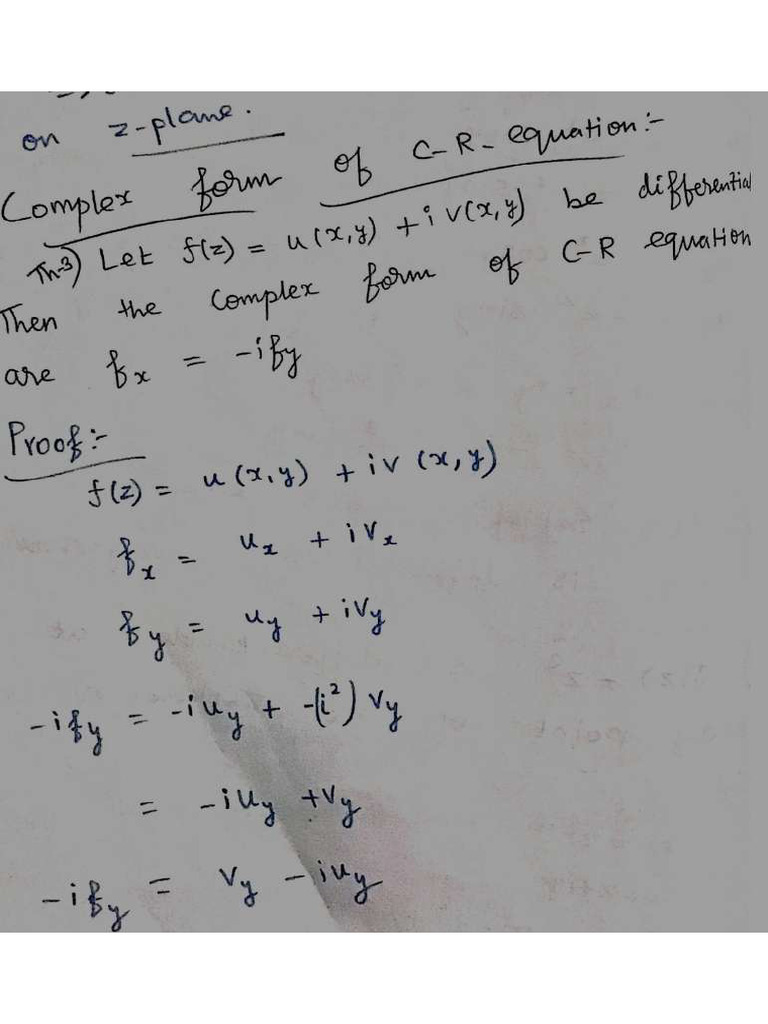 on z-plane.
Complex form of C-R- equation:-
Th-3) Let f(z) = u(x,y) + i v(x,y) be differential
Then the complex form of C-R equation
are fx = -ify
Proof:-
f(z) = u(x,y) + iv (x,y)
fx = ux + ivx
fy = uy + ivy
-ify = -iuy + -(i²) vy
= -iuy +vy
-ify = vy - iuy